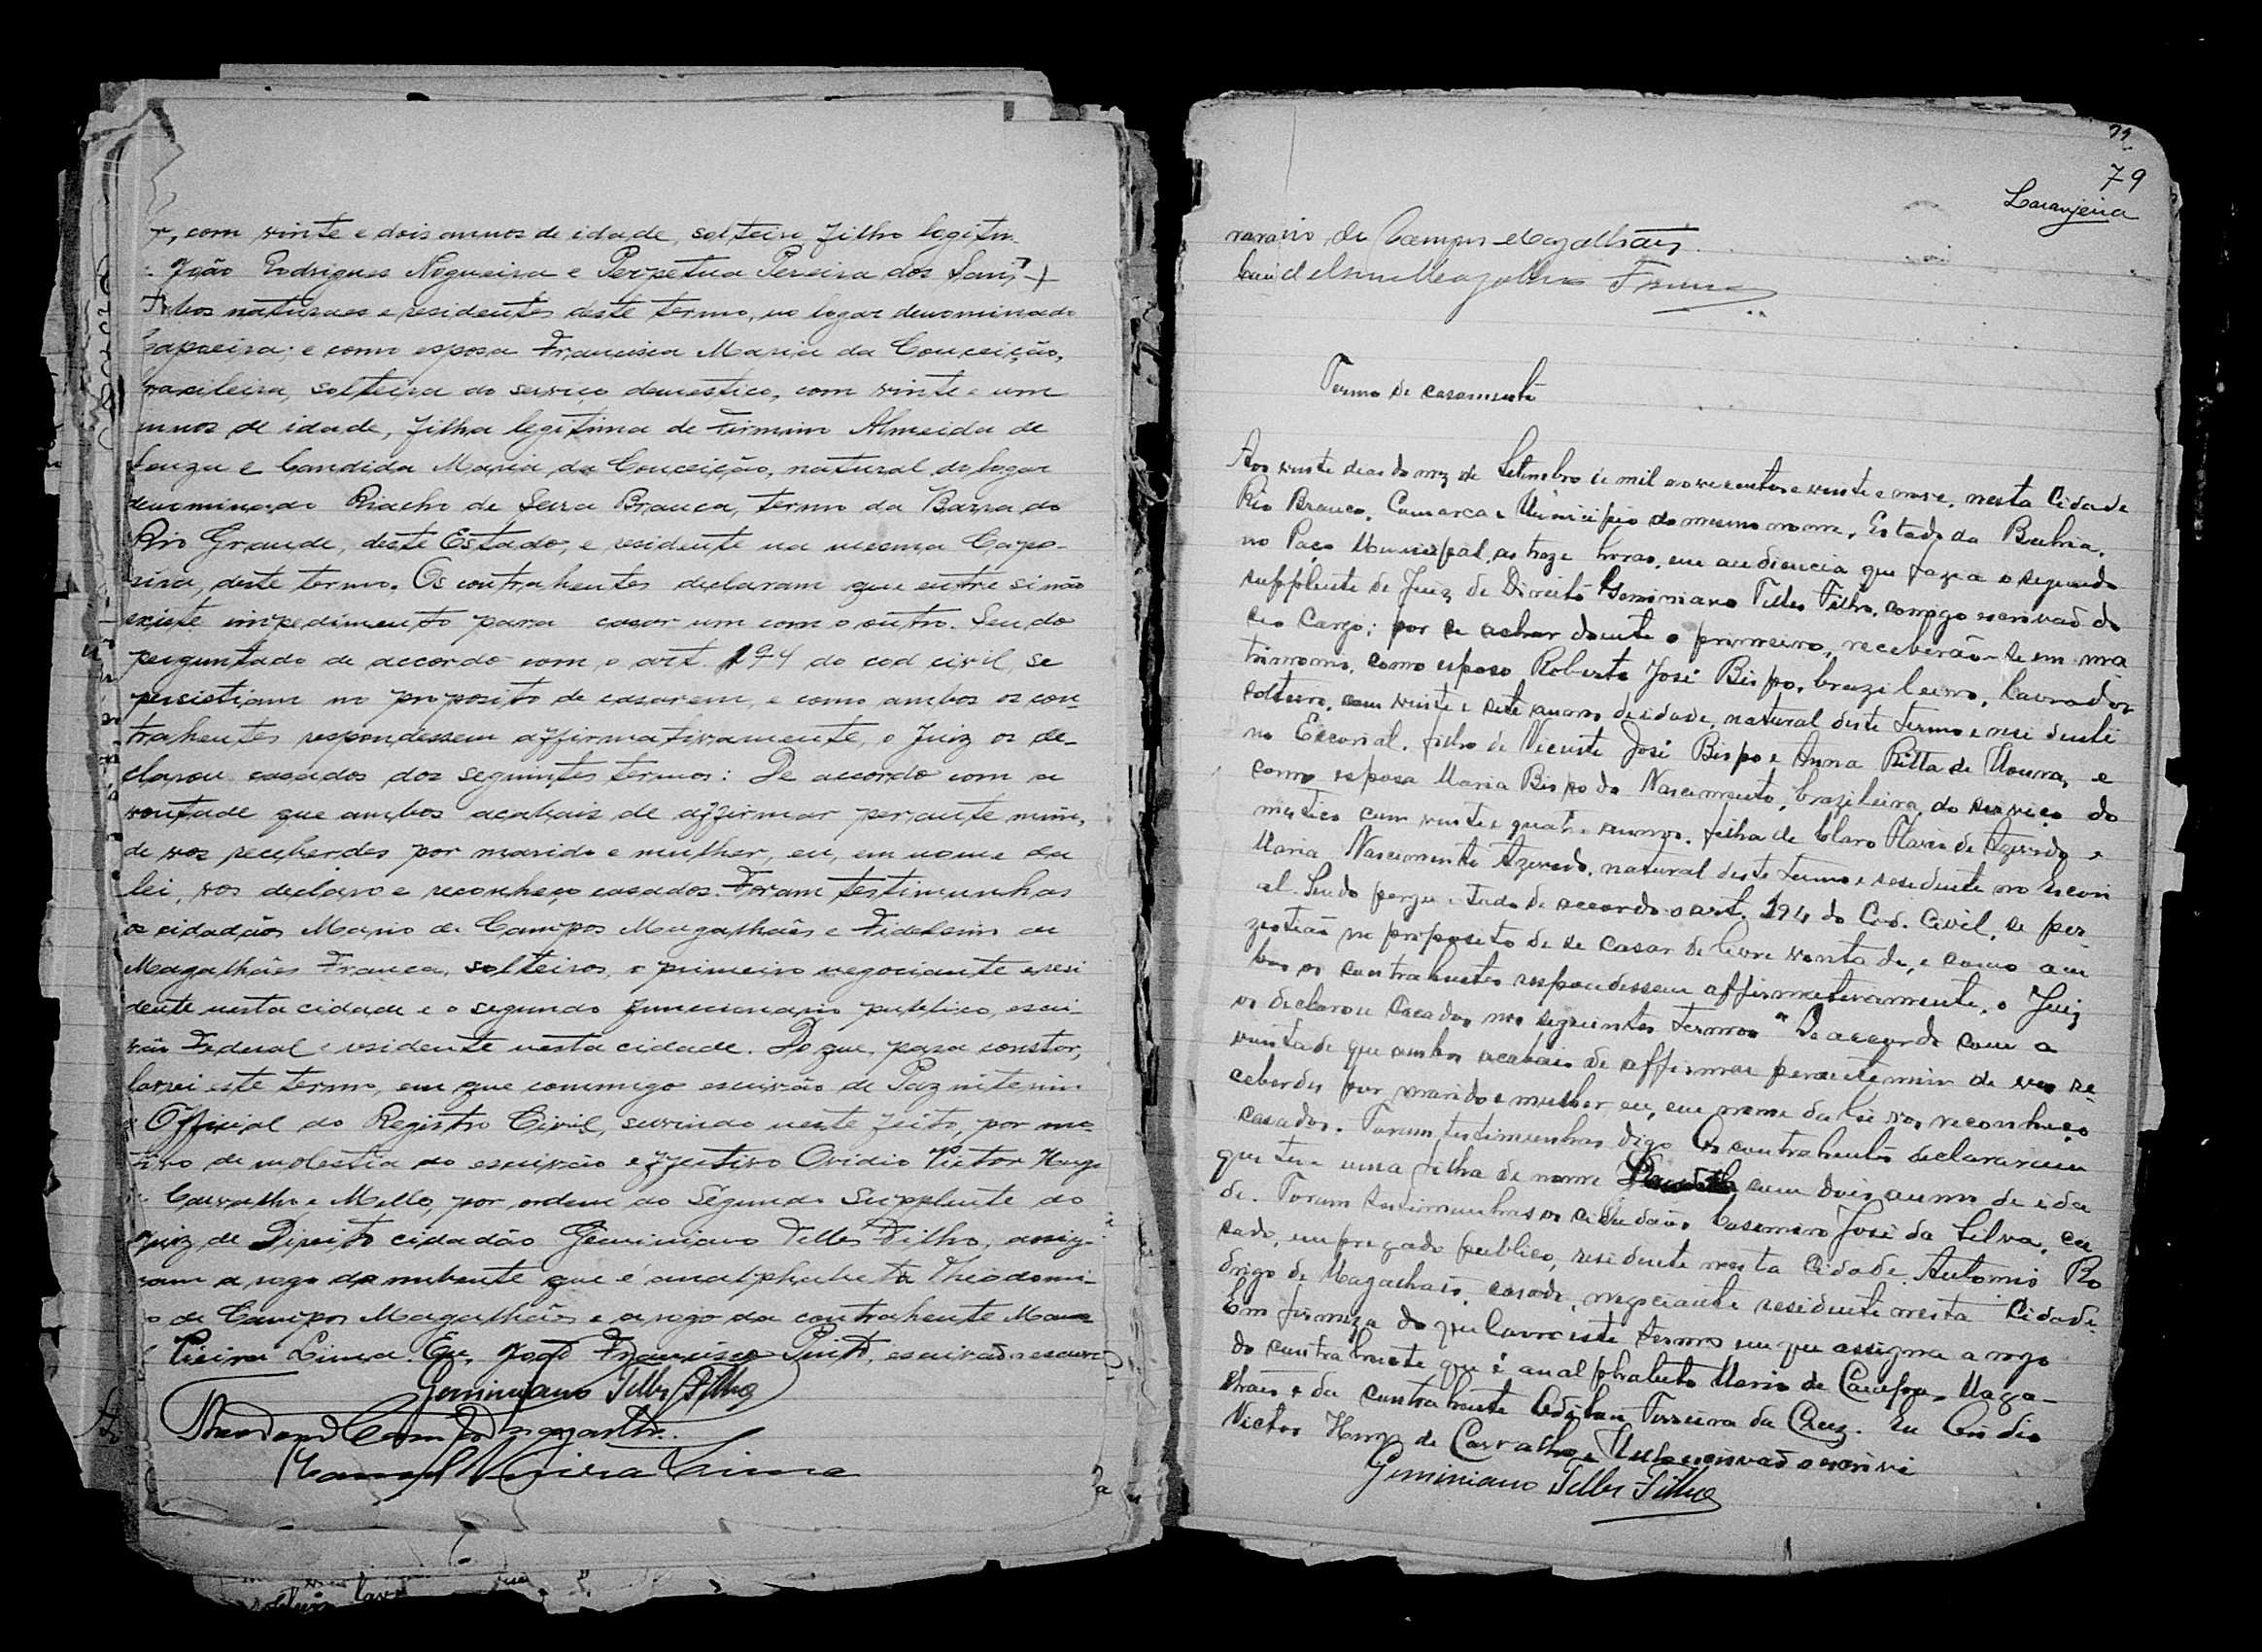 com vinte e dois annos de idade, solteiro filho legitm.
João Rodrigues Nogueira e Perpetua Pereira dos
naturaes e residentes deste termo, no logar denominado
e como esposa Francisca Maria da Conceição,
solteira do serviço domestico, com vinte e um
de idade, filha legitima de Firmino Almeida de
Souza e Candida Maria da Conceição, natural do logar
denominado Riacho de Serra Branca, termo da Barra do
Rio Grande, deste Estado, e residente na mesma Capo-
eira, deste termo. Os contrahentes declaram que entre si não
existe impedimento para casar um com o outro. Sendo
perguntado de accordo com o art. 194 do cod civil, se
persistiam no proposito de casarem, e como ambos os con-
trahentes respondessem affirmativamente, o Juiz os de-
clarou casados dos seguintes termos: De accordo com a
vontade que ambos acabais de affirmar perante mim,
de vos receberdes por marido e mulher, eu, em nome da
lei, vos declaro e reconheço casados. Foram testimunhas
os cidadãos Mario de Campos Magalhães e Fidelsino de
Magalhães Franca, solteiros, o primeiro negociante e resi
dente nesta cidade e o segundo funccionario publico, escri-
vão Federal e residente nesta cidade. Do que, para constar,
lavrei este termo, em que commigo escrivão de Paz
Official do Registro Civil, servindo neste feito, por mo-
tivo de molestia do escrivão effectivo Ovidio Victor Hugo
Carvalho e Mello, por ordem do Segundo Supplente do
Juiz de Direito cidadão Geminiano Telles Filho, assig-
nam a rogo do nubente que é analphabeto Theodomi-
o de Campos Magalhães e a rogo da contrahente Mano
Vieira Lima. Eu, João Francisco Pinto, escrivão o escrevi
Geminiano Telles Filho
Manoel Vieira Lima
79
Laranjeira
de Campos Magalhães
Termo de casamento
Aos vinte dias do mez de Setembro de mil novecentos e vinte e nove, nesta Cidade
Rio Branco, Comarca e Municipio do mesmo nome, Estado da Bahia,
no Paço Municipal, as treze horas, em audiencia que fazia o segundo
supplente de Juiz de Direito Geminiano Telles Filho, comigo escrivão do
seo Cargo; por se achar doente o primeiro, receberão-se em ma
trimonio, como esposo Roberto José Bispo, brazileiro, lavrador
solteiro, com vinte e sete annos de idade, natural deste termo e residente
no Escorial, filho de Vicente José Bispo e Anna Ritta de Moura, e
como esposa Maria Bispo do Nascimento, brazileira, do serviço do
mestico com vinte e quatro annos, filha de Claro Flavio de Azevedo e
Maria Nascimento Azevedo, natural deste termo e residente no Escori
al. Sendo perguntado de accordo o art. 194 do Cod. Civil, se per-
zistião no proposito de se casar de livre vontade, e como am
bos os contrahentes respondessem affirmativamente, o Juiz
os declarou casados nos seguintes termos "De accordo com a
vontade que ambos acabais de affirmar perante mim de vos re-
ceberdes por marido e mulher eu, em nome da lei vos reconheço
casados. Foram testimunhas digo Os contrahentes declararam
que tem uma filha de nome com dois annos de ida
de. Foram testimunhas os cidadãos Casemiro José da Silva, ca
sado, empregado publico, residente nesta Cidade Antonio Ro
drigo de Magalhães, casado, negociante residente nesta Cidade.
Em firmeza do que lavro este termo em que assigna a rogo
do contrahente que é analphabeto Mario de Campos Maga-
lhães e da contrahente Ferreira da Cruz. Eu Ovidio
Victor Hugo de Carvalho e Mello escrivão o escrevi
Geminiano Telles Filho